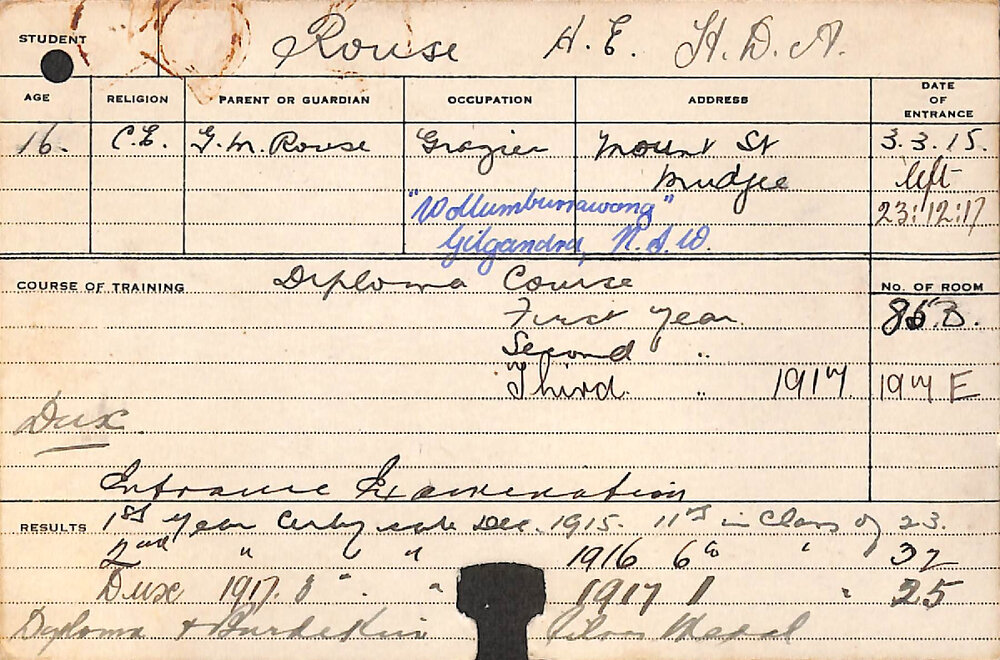 STUDENT Rouse H. E. H. D. A.
AGE RELIGION PARENT OR GUARDIAN OCCUPATION ADDRESS DATE OF ENTRANCE
16. C.E. G. M. Rouse Grazier Mount St 3.3.15.
Mudgee left
"Wollumburrawong" 23:12:17
Gilgandra, N.S.W.
COURSE OF TRAINING Diploma Course No. OF ROOM
First Year 85.B.
Second "
Third. " 1917. 1917 E
Dux
Entrance Examination
RESULTS 1st Year Certificate Dec. 1915. 11th in Class of 23.
2nd " " 1916 6th " 32
Dux 1917. 3rd " 1917 1 " 25
Diploma & Burdekin Silver Medal